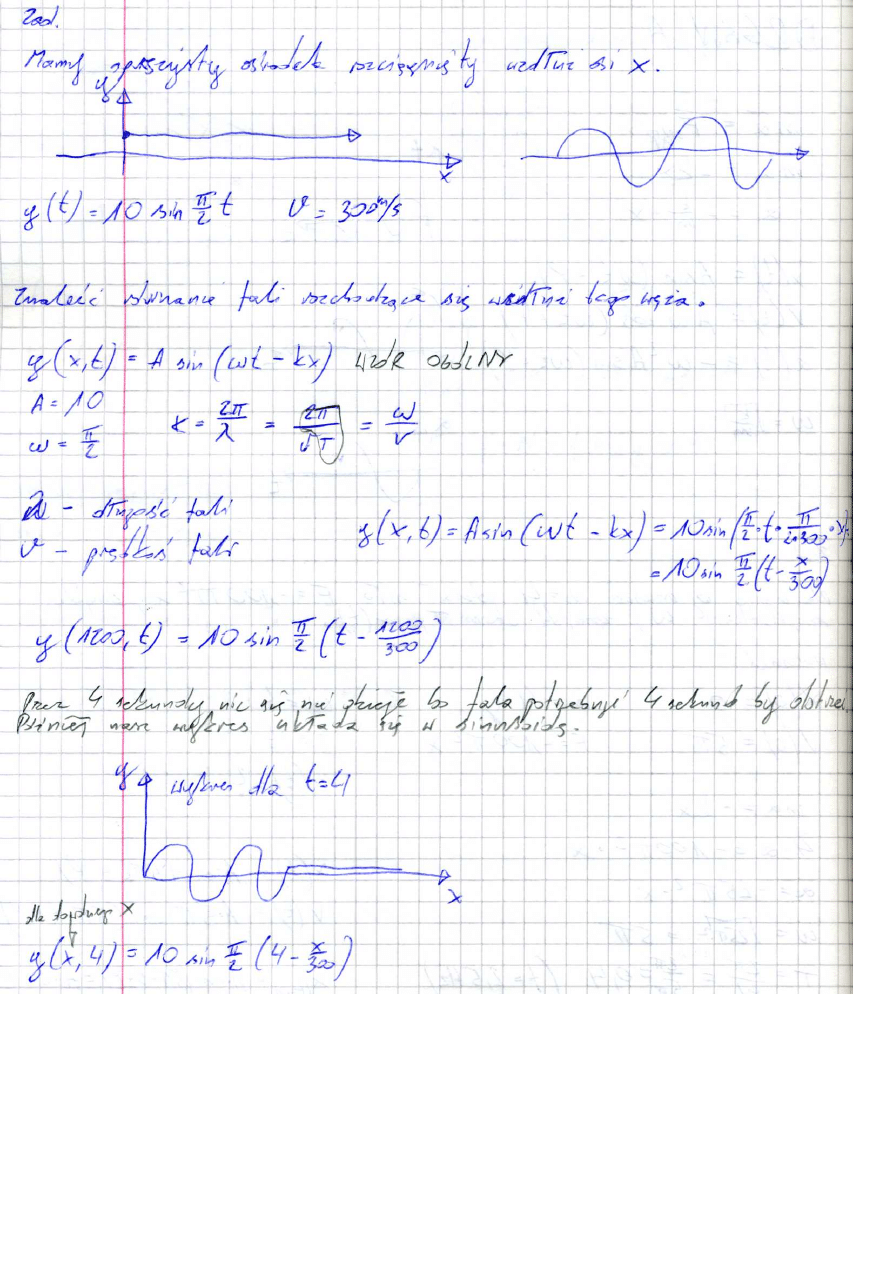 Zad.
Mamy sprężysty ośrodek rozciągnięty wzdłuż osi x.
y
x
y(t) = 10 sin π/2 t     v = 300 m/s
Znaleźć równanie fali rozchodzące się wzdłuż tego węża.
y(x,t) = A sin (ωt - kx) WZÓR OGÓLNY
A = 10
ω = π/2
k = 2π/λ = 2π/vT = ω/v
λ - długość fali
v - prędkość fali
y(x,t) = A sin (ωt - kx) = 10 sin (π/2 · t · π/2·300 · x) =
= 10 sin π/2 (t - x/300)
y(1200,t) = 10 sin π/2 (t - 1200/300)
Przez 4 sekundy nic się nie dzieje bo fala potrzebuje 4 sekund by dotrzeć.
Później nasz wykres układa się w sinusoidę.
y
wykres dla t=4
x
dla x
y(x,4) = 10 sin π/2 (4 - x/300)